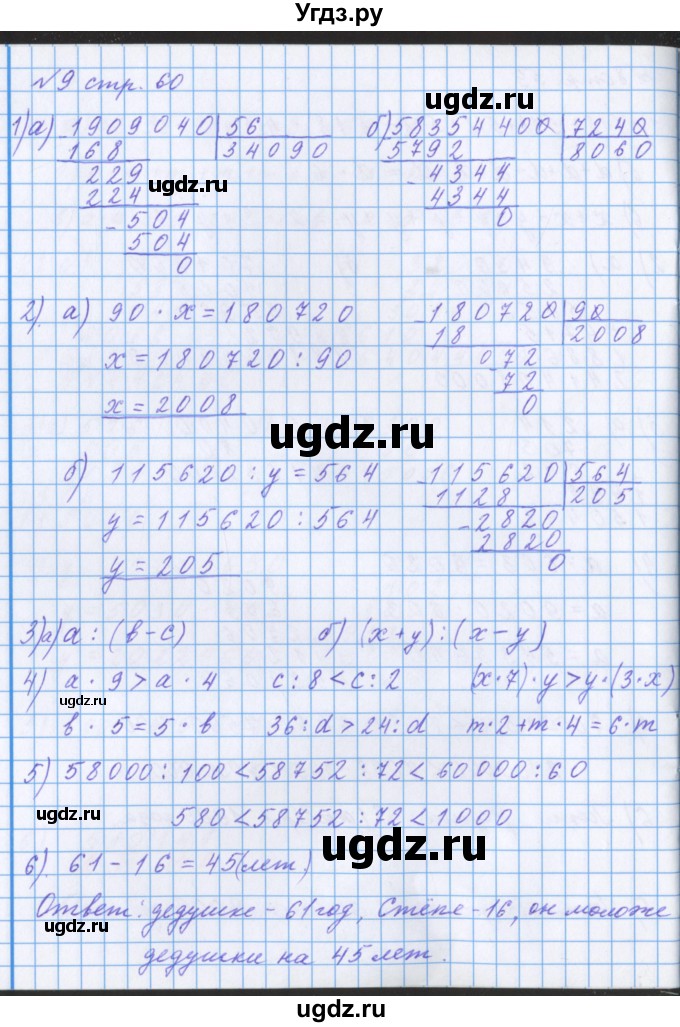 Угдз.ру
№9 стр. 60
1) а) 1909040 | 56
168 | 34090
229
224
504
504
0
б) 58354400 | 7240
5792 | 8060
4344
4344
0
ugdz.ru
2). а) 90 · x = 180720
x = 180720 : 90
x = 2008
180720 | 90
18 | 2008
072
72
0
ugdz.ru
б) 115620 : y = 564
y = 115620 : 564
y = 205
115620 | 564
1128 | 205
2820
2820
0
ugdz.ru
3) а) a : (b - c) б) (x + y) : (x - y)
4) a · 9 > a · 4 c : 8 < c : 2 (x · 7) · y > y · (3 · x)
ugdz.ru
b · 5 = 5 · b 36 : d > 24 : d m · 2 + m · 4 = 6 · m
5) 58000 : 100 < 58752 : 72 < 60000 : 60
580 < 58752 : 72 < 1000
ugdz.ru
ugdz.ru
6). 61 - 16 = 45 (лет)
Ответ: дедушке - 61 год, Стёпе - 16, он моложе
дедушки на 45 лет.
ugdz.ru